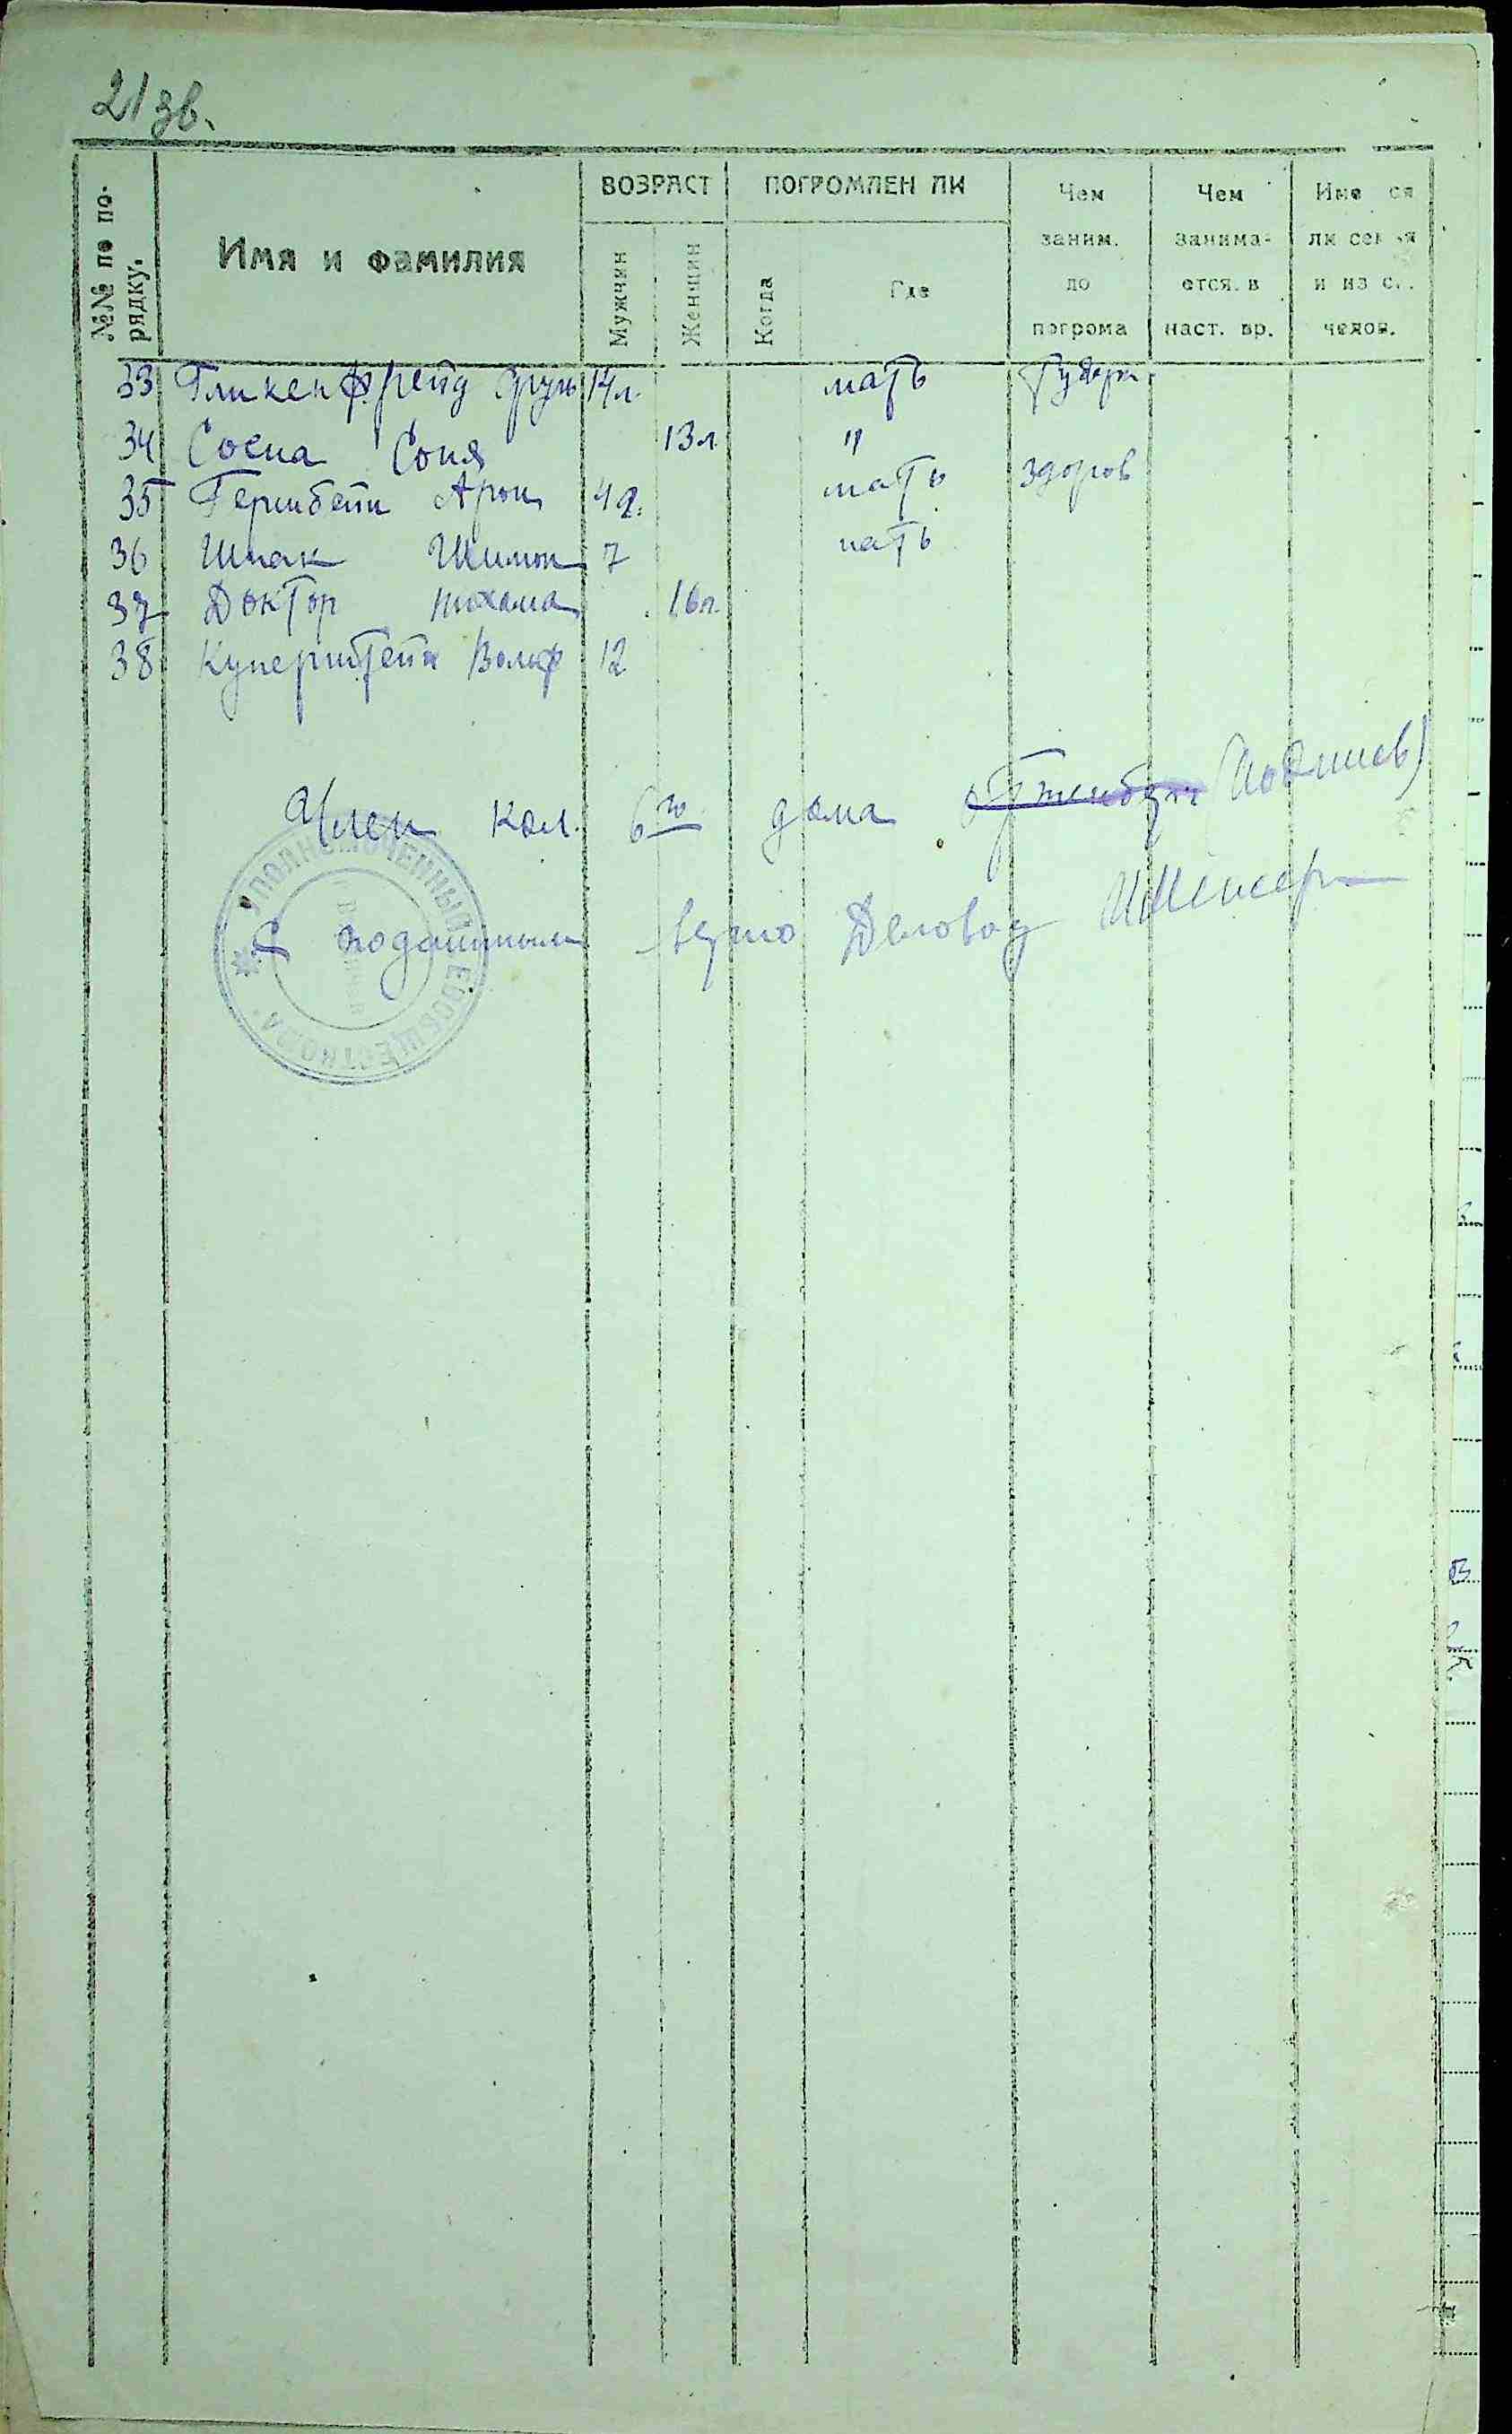 21 зв.
№№ по по-
рядку.
Имя и фамилия
ВОЗРАСТ
Мужчин
Женщин
ПОГРОМЛЕН ЛИ
Когда
Где
Чем
заним.
до
погрома
Чем
занима-
ется. в
наст. вр.
Име ся
ли сем я
и из ск.
челов.
33 Гликенфрейд Сруль 14 л. мать
34 Сосна Соня 13 л. "
35 Герибейн Арон 4 г. мать здоров
36 Шпак Шимон 7 мать
37 Доктор Нихама 16 л.
38 Куперштейн Вольф 12
Член кол. 6го дома
С подлинным верно Деловод
УПОЛНОМОЧЕННЫЙ ЕВОБЩЕСТКОМА